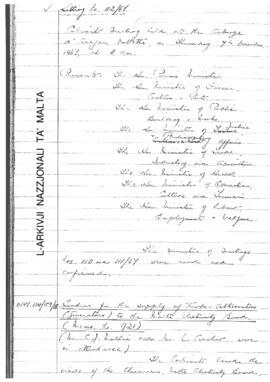 Sitting No. 112/67.
Cabinet Meeting held at the Auberge
d'Aragon, Valletta, on Thursday, 7th December
1967, at
Present:
The Hon. Prime Minister
The Hon. Minister of Finance,
Customs & Port
The Hon. Minister of Public
Building & Works
The Hon. Minister of Justice
& Parliamentary Affairs
The Hon. Minister of Trade,
Industry and Agriculture
The Hon. Minister of Health
The Hon. Minister of Education,
Culture and Tourism
The Hon. Minister of Labour,
Employment & Welfare
The minutes of Meetings
Nos. 110 and 111/67 were read and
confirmed.
L-ARKIVJI NAZZJONALI TA' MALTA
Tenders for the supply of Turbo-Alternators
(Generators) to the Malta Electricity Board
(Memo. No. 921)
were
in attendance)
The Cabinet heard the
views of the Chairman, Malta Electricity Board,